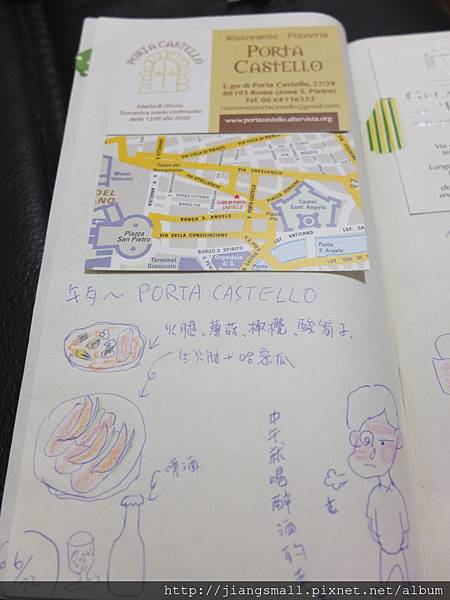 PORTA CASTELLO
Martedì chiuso.
Domenica orario continuato
dalle 12:00 alle 20:00
Ristorante - Pizzeria
PORTA
CASTELLO
L.go di Porta Castello, 27/29
00193 Roma (zona S. Pietro)
Tel. 06.68136353
ristoranteportacastello@gmail.com
www.portacastello.altervista.org
VIA COLA DI RIENZO
VIA COLA DI RIENZO
Piazza del
Risorgimento
VIA CRESCENZIO
Musei
Vaticani
VIA VITELLESCHI
BORGO VITTORIO
BORGO PIO
L.GO DI PORTA
CASTELLO
PIAZZA ADRIANA
Castel
Sant' Angelo
BORGO S. ANGELO
Piazza
Pia
Piazza
SAN PIETRO
VIA DELLA CONCILIAZIONE
BORGO S. SPIRITO
LGT. VATICANO
Ponte
S. Angelo
Terminal
Gianicolo
Ospedale
di S.
LGT. TOR DI
~ PORTA CASTELLO
火腿、蘑菇、橄欖、酸筍子
生火腿+哈密瓜
啤酒
中午就喝醉酒的
06/
http://jiangsmall.pixnet.net/album